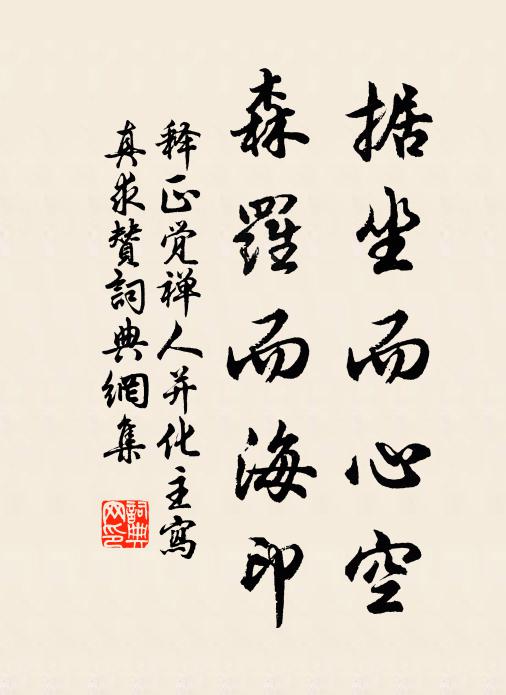 据坐而心空
森羅而海印
释正觉禅人并化主寫
真求赞詞典網集
詞典网印